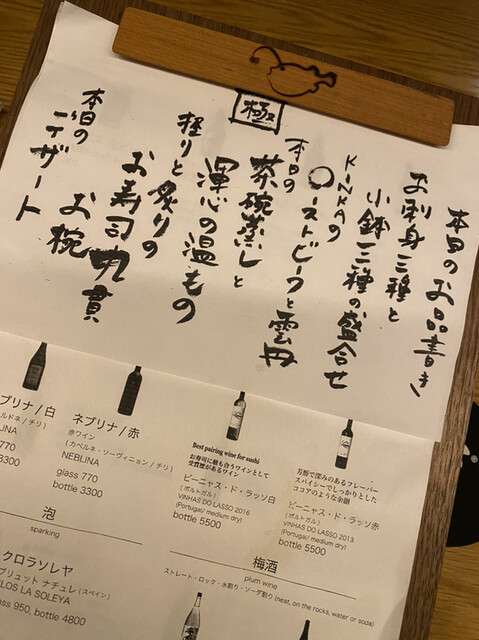 極
本日のお品書き
お刺身三種と
小鉢三種の盛合せ
KINKAの
ローストビーフと雲丹
本日の
茶碗蒸しと
渾心の温もの
握りと炙りの
お寿司九貫
お椀
本日の
デザート
ブリナ/白
ルドネ/チリ)
LINA
770
3300
ネブリナ/赤
赤ワイン
(カベルネ・ソーヴィニョン/チリ)
NEBLINA
glass 770
bottle 3300
Best pairing wine for sushi
お寿司に最も合うワインとして
受賞歴があるワイン
ビーニャス・ド・ラッソ白
(ポルトガル)
VINHAS DO LASSO 2016
(Portugal/ medium dry)
bottle 5500
芳醇で深みのあるフレーバー
スパイシーでしっかりとした
ココアのような余韻
ビーニャス・ド・ラッソ赤
(ポルトガル)
VINHAS DO LASSO 2013
(Portugal/ medium dry)
bottle 5500
泡
sparking
クロラソレヤ
ブリュット ナチュレ (スペイン)
LOS LA SOLEYA
ass 950, bottle 4800
梅酒
plum wine
ストレート・ロック・水割り・ソーダ割り (neat, on the rocks, water or soda)